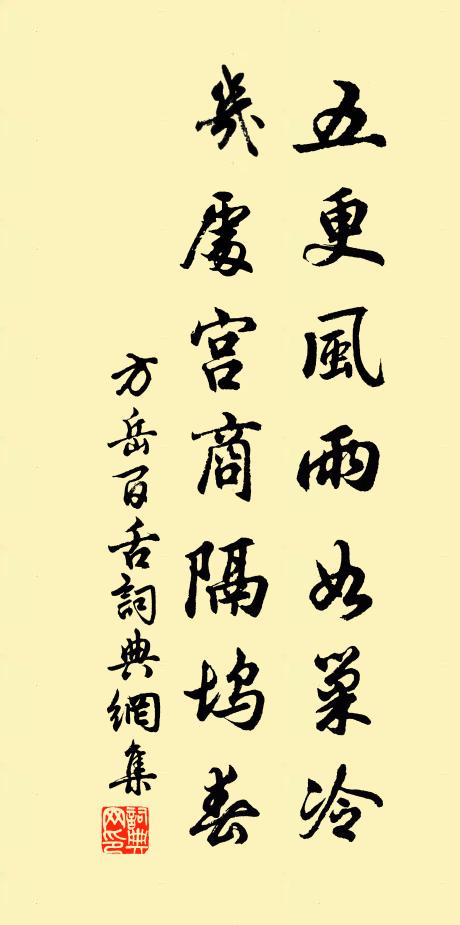 五更風雨如巢冷
幾處宮商隔塢春
方岳百舌詞典網集
詞典網印